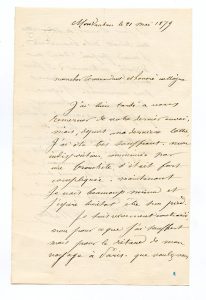 Montauban le 21 mai 1879
Monsieur Commandant et honoré collègue
J'ai bien tardé à vous
remercier de votre dernier envoi,
mais, depuis ma dernière lettre
j'ai été très souffrant. mon
indisposition commencée par
une bronchite s'était fort
compliquée. maintenant
je vais beaucoup mieux et
j'espère bientôt être sur pied.
Je suis vivement contrarié
non pour ce que j'ai souffert
mais pour le retard de mon
voyage à Paris. que voulez vous